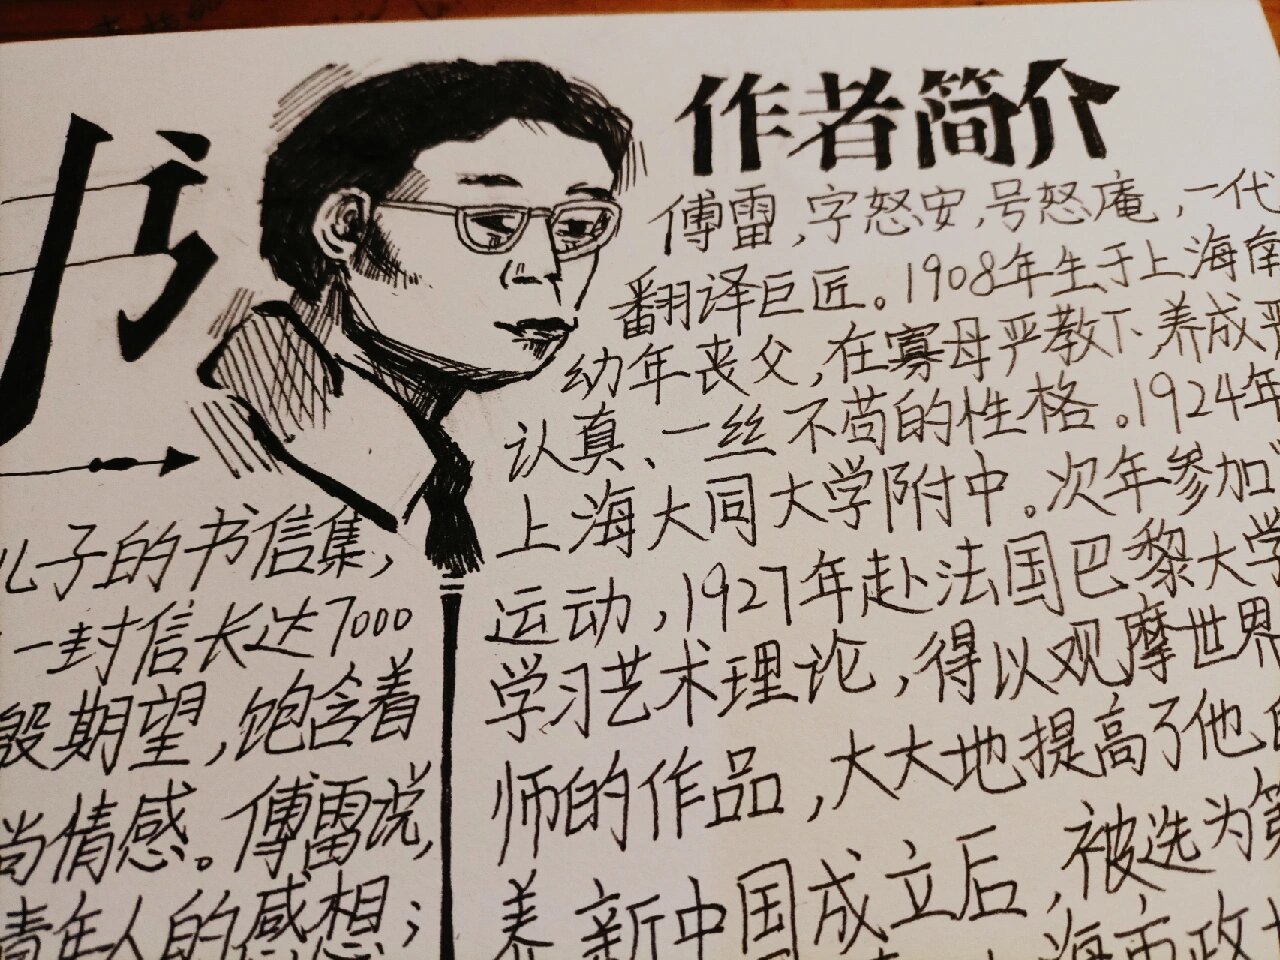 书
儿子的书信集，
一封信长达7000
殷期望，饱含着
尚情感。傅雷说，
青年人的感想；
作者简介
傅雷，字怒安，号怒庵，一代
翻译巨匠。1908年生于上海南
幼年丧父，在寡母严教下，养成严
认真、一丝不苟的性格。1924年
上海大同大学附中。次年参加
运动，1927年赴法国巴黎大学
学习艺术理论，得以观摩世界
师的作品，大大地提高了他的
养 新中国成立后，被选为第
海市政